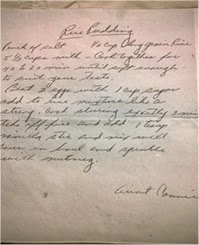 Rice Pudding
Pinch of salt ½ cup Long grain Rice
5 ½ cups milk - Cook together for
to 25 min until soft enough
to suit your taste.
Beat 2 eggs with 1 cup sugar
add to rice mixture like a
string. Cook stirring exactly 3 min
take off fire and add 1 teasp
vanilla stir and mix well
pour in bowl and sprinkle
with nutmeg.
Aunt Connie